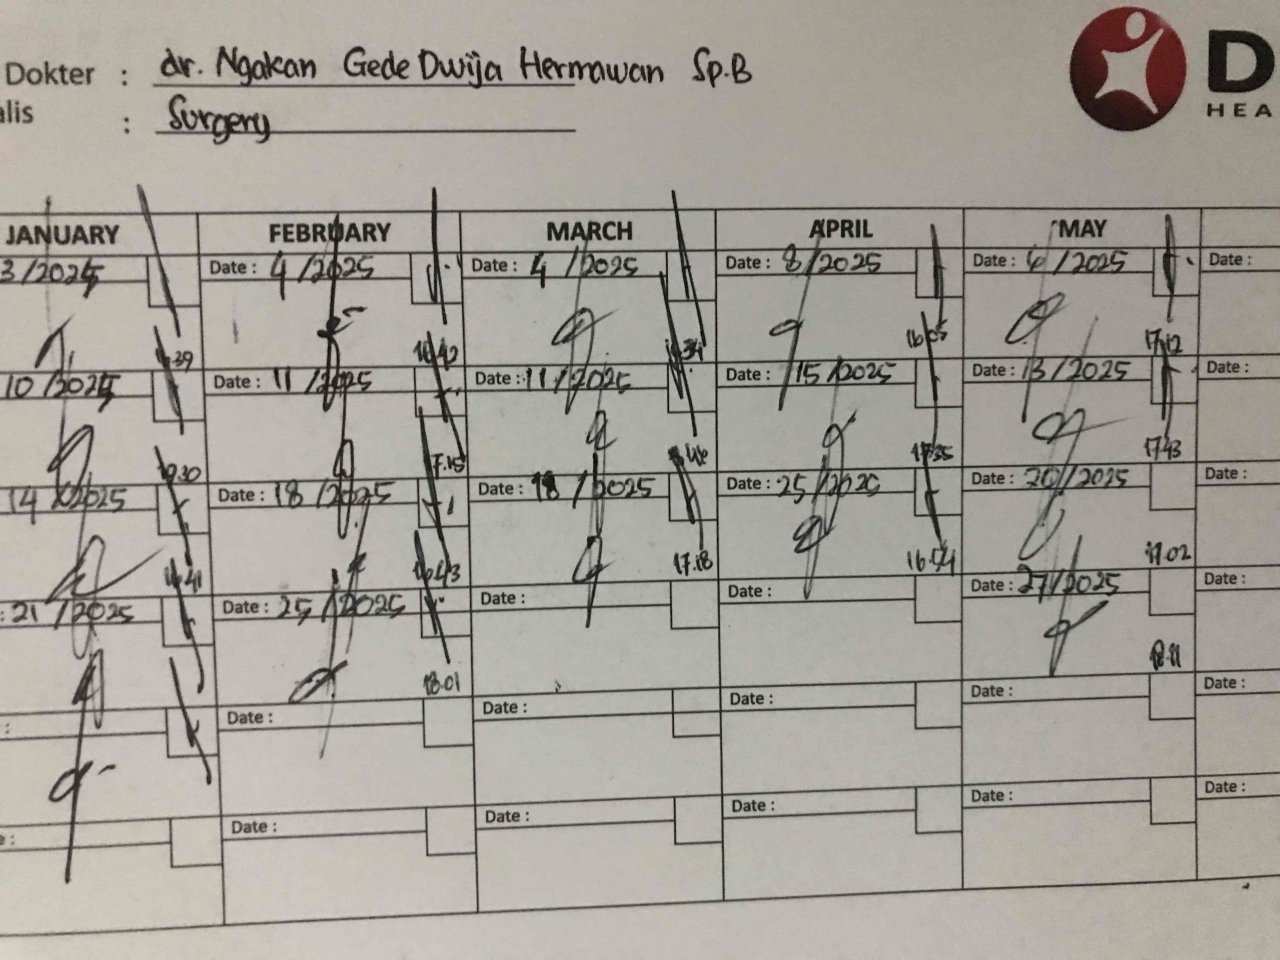 Dokter : dr. Ngakan Gede Dwija Hermawan Sp.B
alis : Surgery
D
HEA
JANUARY FEBRUARY MARCH APRIL MAY
3/2025 Date : 4/2025 Date : 4/2025 Date : 8/2025 Date : 6/2025 Date :
16.42 17.12
10/2025 Date : 11/2025 Date : 11/2025 Date : 15/2025 Date : 13/2025 Date :
17.15 17.35 17.43
14/2025 Date : 18/2025 Date : 18/2025 Date : 25/2025 Date : 20/2025 Date :
16.41 16.43 17.18 16.54 17.02
: 21/2025 Date : 25/2025 Date : Date : Date : 27/2025 Date :
18.01 18.11
: Date : Date : Date : Date : Date :
e : Date : Date : Date : Date : Date :